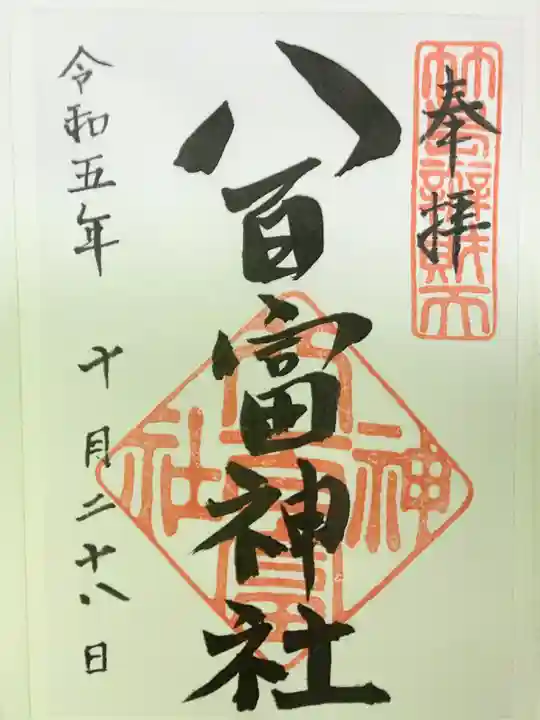 奉拝
竹島辨財天
八百富神社
八百富神社
令和五年 十月二十八日